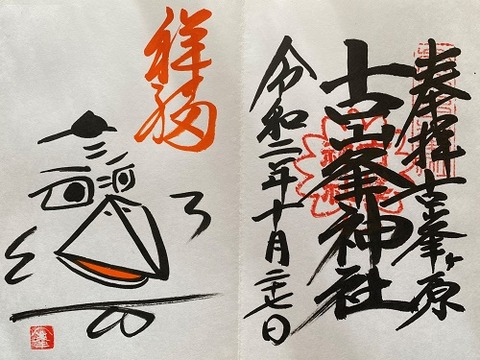 奉拝 古峯ヶ原
古峯神社
令和二年十月二十七日
祥福